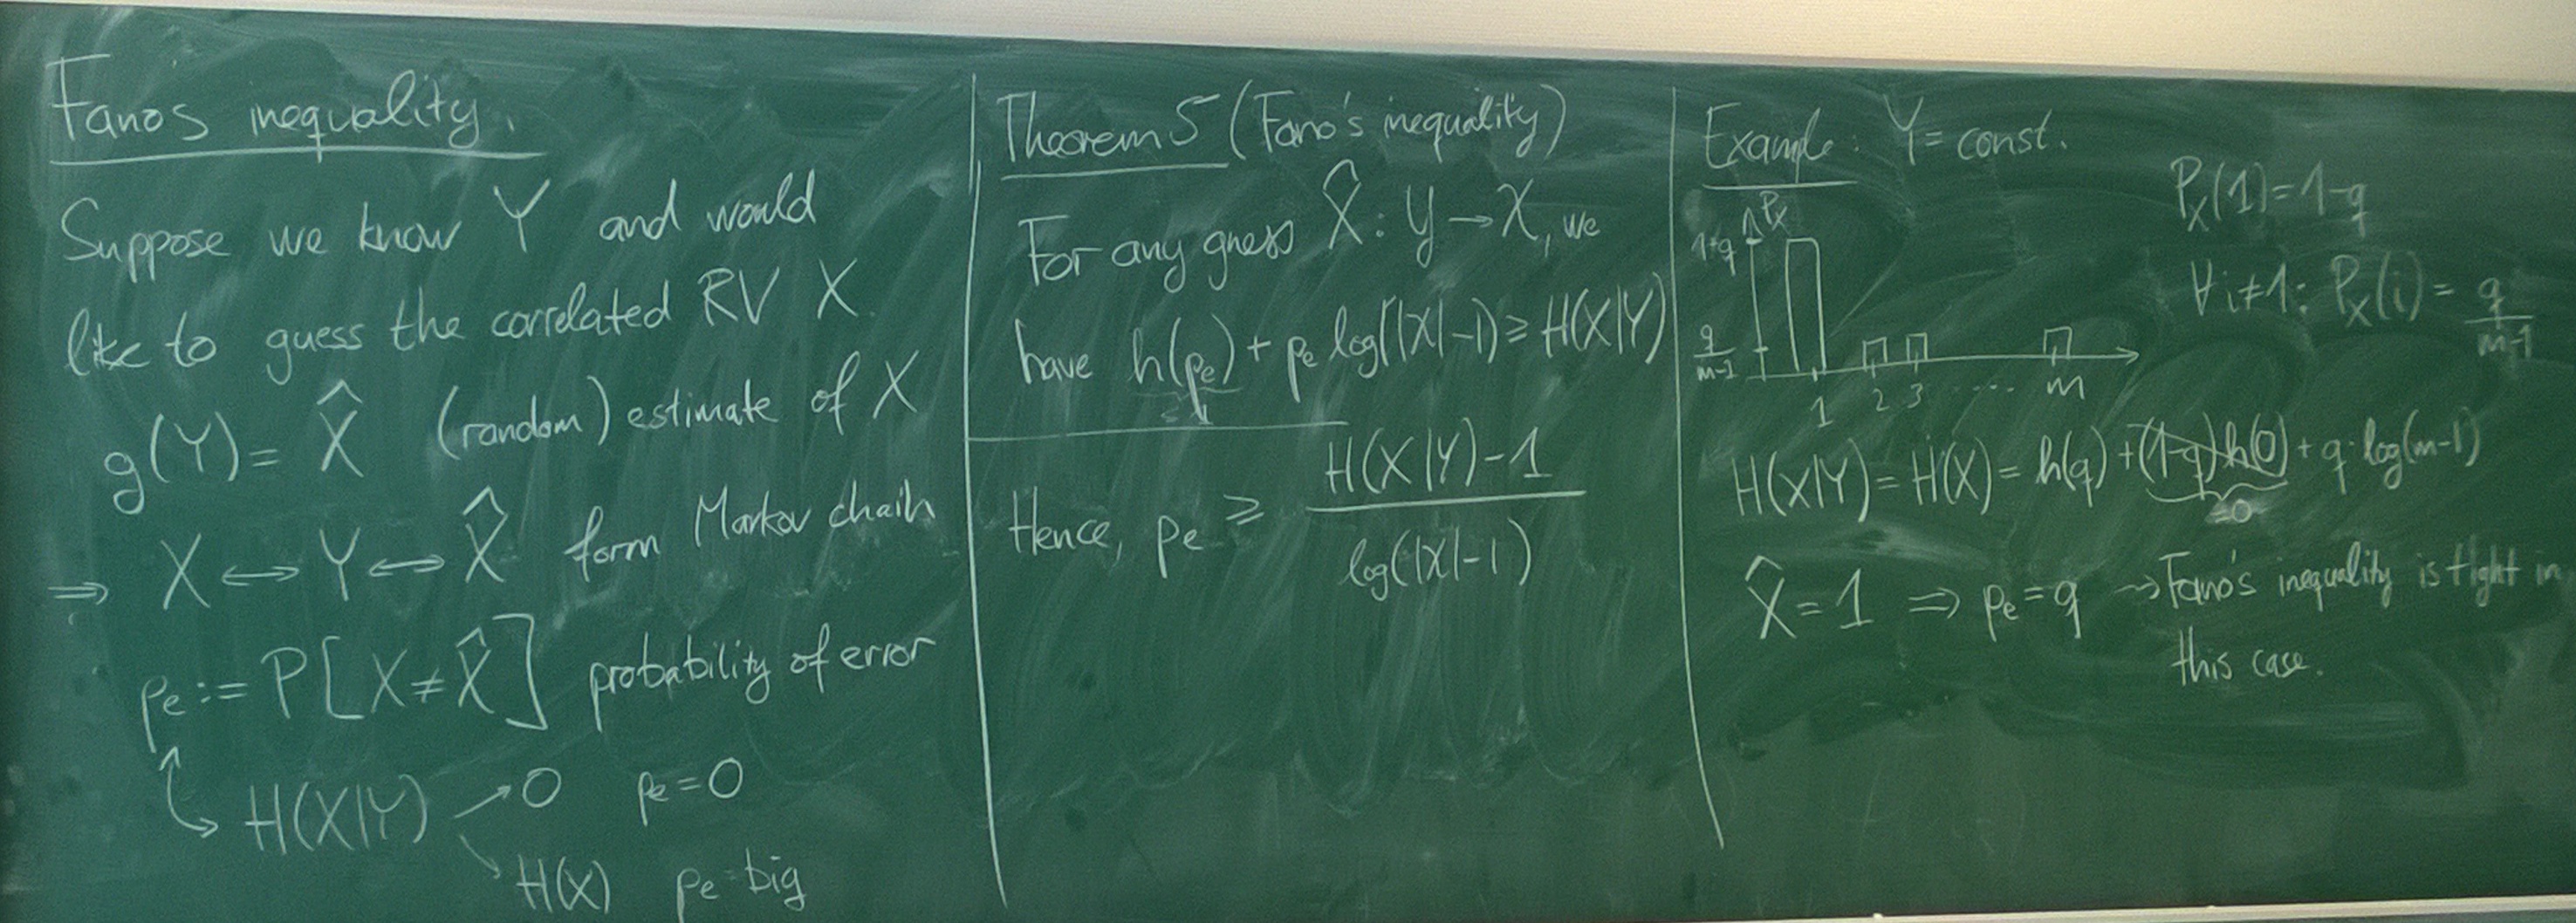 Fanos inequality.
Suppose we know Y and would
like to guess the correlated RV X.
g(Y) = X̂ (random) estimate of X
⇒ X ↔ Y ↔ X̂ form Markov chain
pₑ := P[X ≠ X̂] probability of error
H(X|Y) → 0 pₑ = 0
H(X) pₑ big
Theorem 5 (Fano's inequality)
For any guess X̂ : Y → X, we
have h(pₑ) + pₑ log(|X|-1) ≥ H(X|Y)
≤ 1
Hence, pₑ ≥ H(X|Y) - 1
log(|X|-1)
Example: Y = const.
P_X(1) = 1-q
∀ i≠1: P_X(i) = q/m-1
P_X
q/m-1
1 2 3 .... m
H(X|Y) = H(X) = h(q) + (1-q)h(0) + q·log(m-1)
=0
X̂ = 1 ⇒ pₑ = q ⇝ Fano's inequality is tight in
this case.